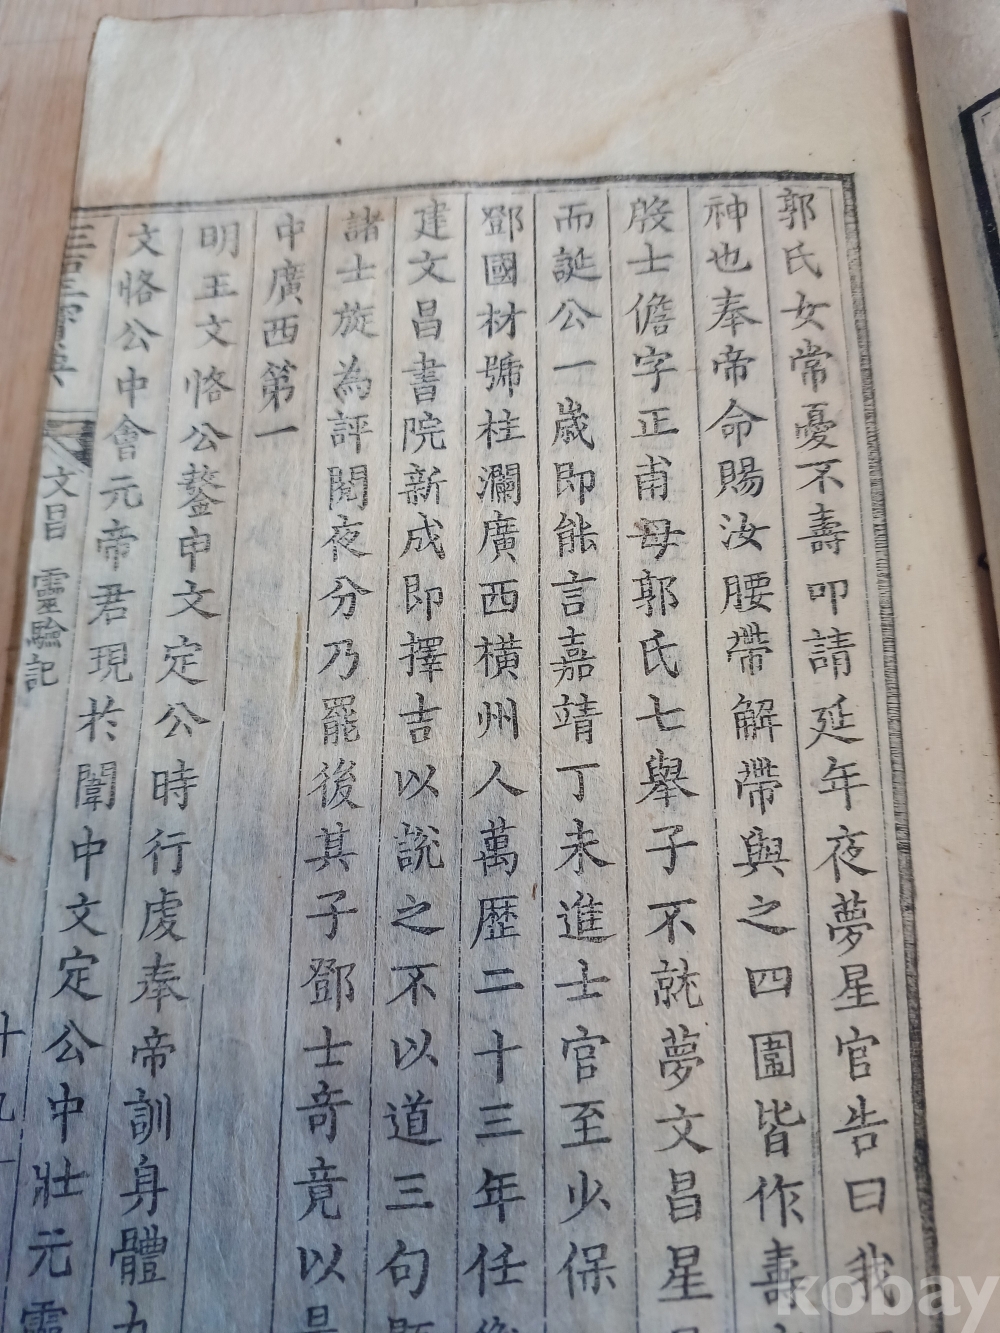 郭氏女常憂不壽叩請延年夜夢星官告曰我
神也奉帝命賜汝腰帶解帶與之四圍皆作壽
殷士儋字正甫母郭氏七舉子不就夢文昌星
而誕公一歲即能言嘉靖丁未進士官至少保
鄧國材號柱瀾廣西橫州人萬歷二十三年任
建文昌書院新成即擇吉以說之不以道三句
諸士旋為評閱夜分乃罷後其子鄧士奇竟以
中廣西第一
明王文恪公鏊申文定公時行虔奉帝訓身體
文恪公中會元帝君現於闈中文定公中壯元
三聖寶
文昌 靈驗記
十九
kobay